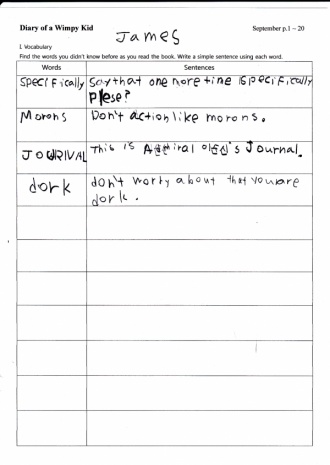 Diary of a Wimpy Kid
James
September p.1 – 20
I. Vocabulary
Find the words you didn't know before as you read the book. Write a simple sentence using each word.
Words
Sentences
specifically
Say that one more time specifically
Plese?
Morons
Don't action like morons.
JOURIVAL
This is Admiral 이순신's Journal.
dork
don't worty about that you are
dork.